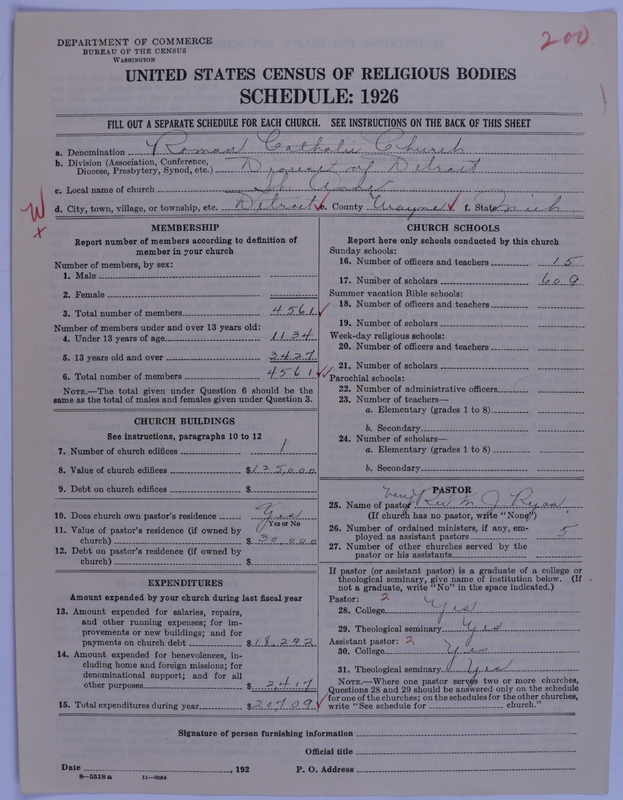 DEPARTMENT OF COMMERCE
BUREAU OF THE CENSUS
WASHINGTON
200
UNITED STATES CENSUS OF RELIGIOUS BODIES
SCHEDULE: 1926
FILL OUT A SEPARATE SCHEDULE FOR EACH CHURCH. SEE INSTRUCTIONS ON THE BACK OF THIS SHEET
a. Denomination Roman Catholic Church
b. Division (Association, Conference,
Diocese, Presbytery, Synod, etc.) Diocese of Detroit
c. Local name of church St Anne
d. City, town, village, or township, etc. Detroit e. County Wayne f. State Mich
W
x
MEMBERSHIP
Report number of members according to definition of
member in your church
Number of members, by sex:
1. Male
2. Female
3. Total number of members 4561
Number of members under and over 13 years old:
4. Under 13 years of age 1134
5. 13 years old and over 3427
6. Total number of members 4561
NOTE.—The total given under Question 6 should be
same as the total of males and females given under Question 3.
CHURCH BUILDINGS
See instructions, paragraphs 10 to 12
7. Number of church edifices 1
8. Value of church edifices $125,000
9. Debt on church edifices $
10. Does church own pastor's residence Yes
Yes or No
11. Value of pastor's residence (if owned by
church) $30,000
12. Debt on pastor's residence (if owned by
church) $
EXPENDITURES
Amount expended by your church during last fiscal year
13. Amount expended for salaries, repairs,
and other running expenses; for im-
provements or new buildings; and for
payments on church debt $18,292
14. Amount expended for benevolences, in-
cluding home and foreign missions; for
denominational support; and for all
other purposes $2,417
15. Total expenditures during year $20709
CHURCH SCHOOLS
Report here only schools conducted by this church
Sunday schools:
16. Number of officers and teachers 15
17. Number of scholars 609
Summer vacation Bible schools:
18. Number of officers and teachers
19. Number of scholars
Week-day religious schools:
20. Number of officers and teachers
21. Number of scholars
Parochial schools:
22. Number of administrative officers
23. Number of teachers—
a. Elementary (grades 1 to 8)
b. Secondary
24. Number of scholars—
a. Elementary (grades 1 to 8)
b. Secondary
PASTOR
25. Name of pastor Very Rev M. J. Ryan
(If church has no pastor, write "None")
26. Number of ordained ministers, if any, em-
ployed as assistant pastors 5
27. Number of other churches served by the
pastor or his assistants
If pastor (or assistant pastor) is a graduate of a college or
theological seminary, give name of institution below. (If
not a graduate, write "No" in the space indicated.)
Pastor: 2
28. College Yes
29. Theological seminary Yes
Assistant pastor: 2
30. College Yes
31. Theological seminary Yes
NOTE.—Where one pastor serves two or more churches,
Questions 28 and 29 should be answered only on the schedule
for one of the churches; on the schedules for the other churches,
write "See schedule for church."
Signature of person furnishing information
Official title
Date , 192 P. O. Address
8—5518a 11—9084